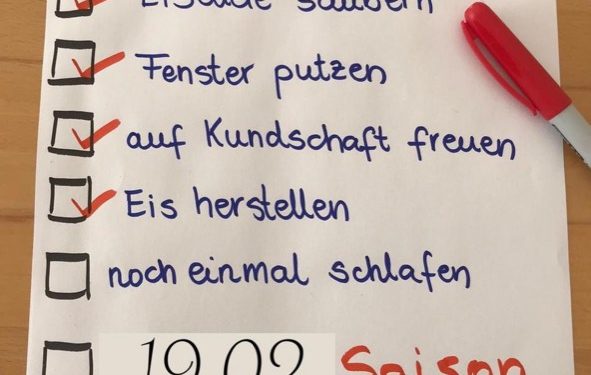 säubern
Fenster putzen
auf Kundschaft freuen
Eis herstellen
noch einmal schlafen
19.02 Saison